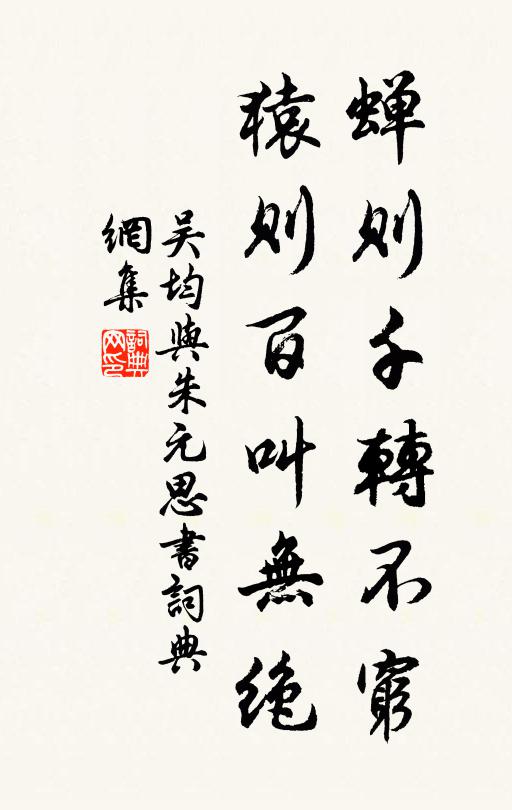 蟬則千轉不窮
猿則百叫無絕
吴均與朱元思書詞典
網集
詞典网印